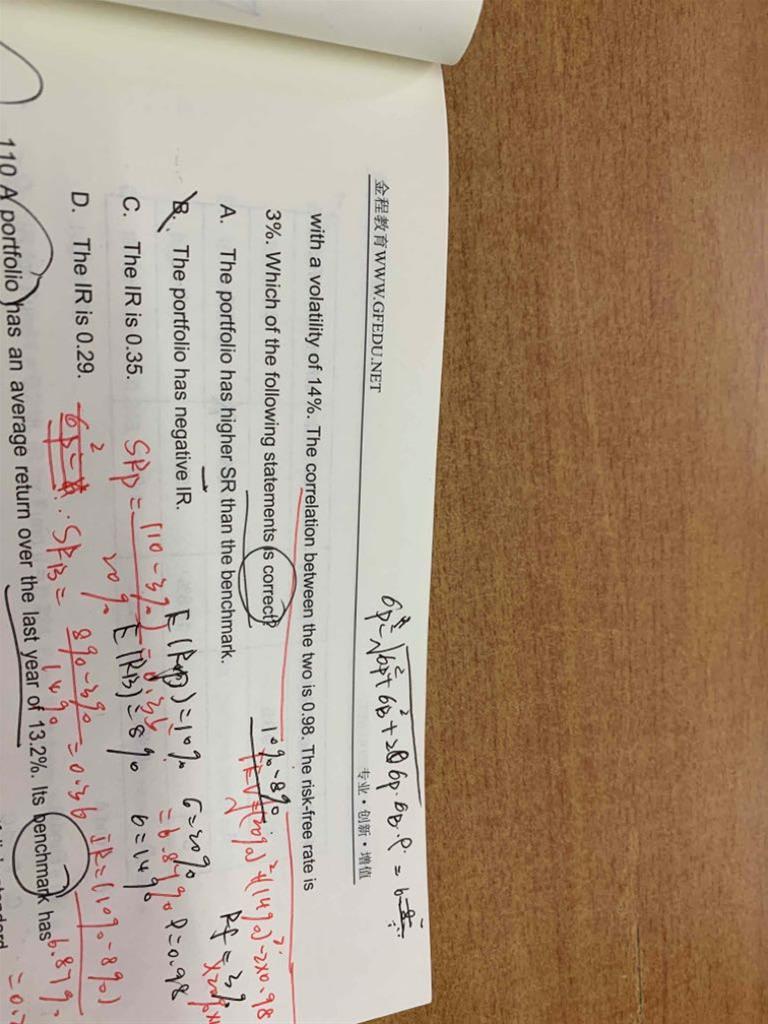 金程教育WWW.GFEDU.NET
专业·创新·增值
with a volatility of 14%. The correlation between the two is 0.98. The risk-free rate is
3%. Which of the following statements is correct?
10%-8%
A. The portfolio has higher SR than the benchmark.
B. The portfolio has negative IR.
E(Rp)=10% σ=20% Rf=3%
C. The IR is 0.35.
E(RB)=8% σ=14% ρ=0.98
D. The IR is 0.29.
SRB = 8%-3% / 14% = 0.36
IR=(10%-8%)
6.87%
110 A portfolio has an average return over the last year of 13.2%. Its benchmark has